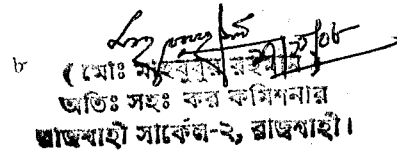 (মোঃ মাহবুবুর রহমান)
অতিঃ সহঃ কর কমিশনার
রাজশাহী সার্কেল-২, রাজশাহী।